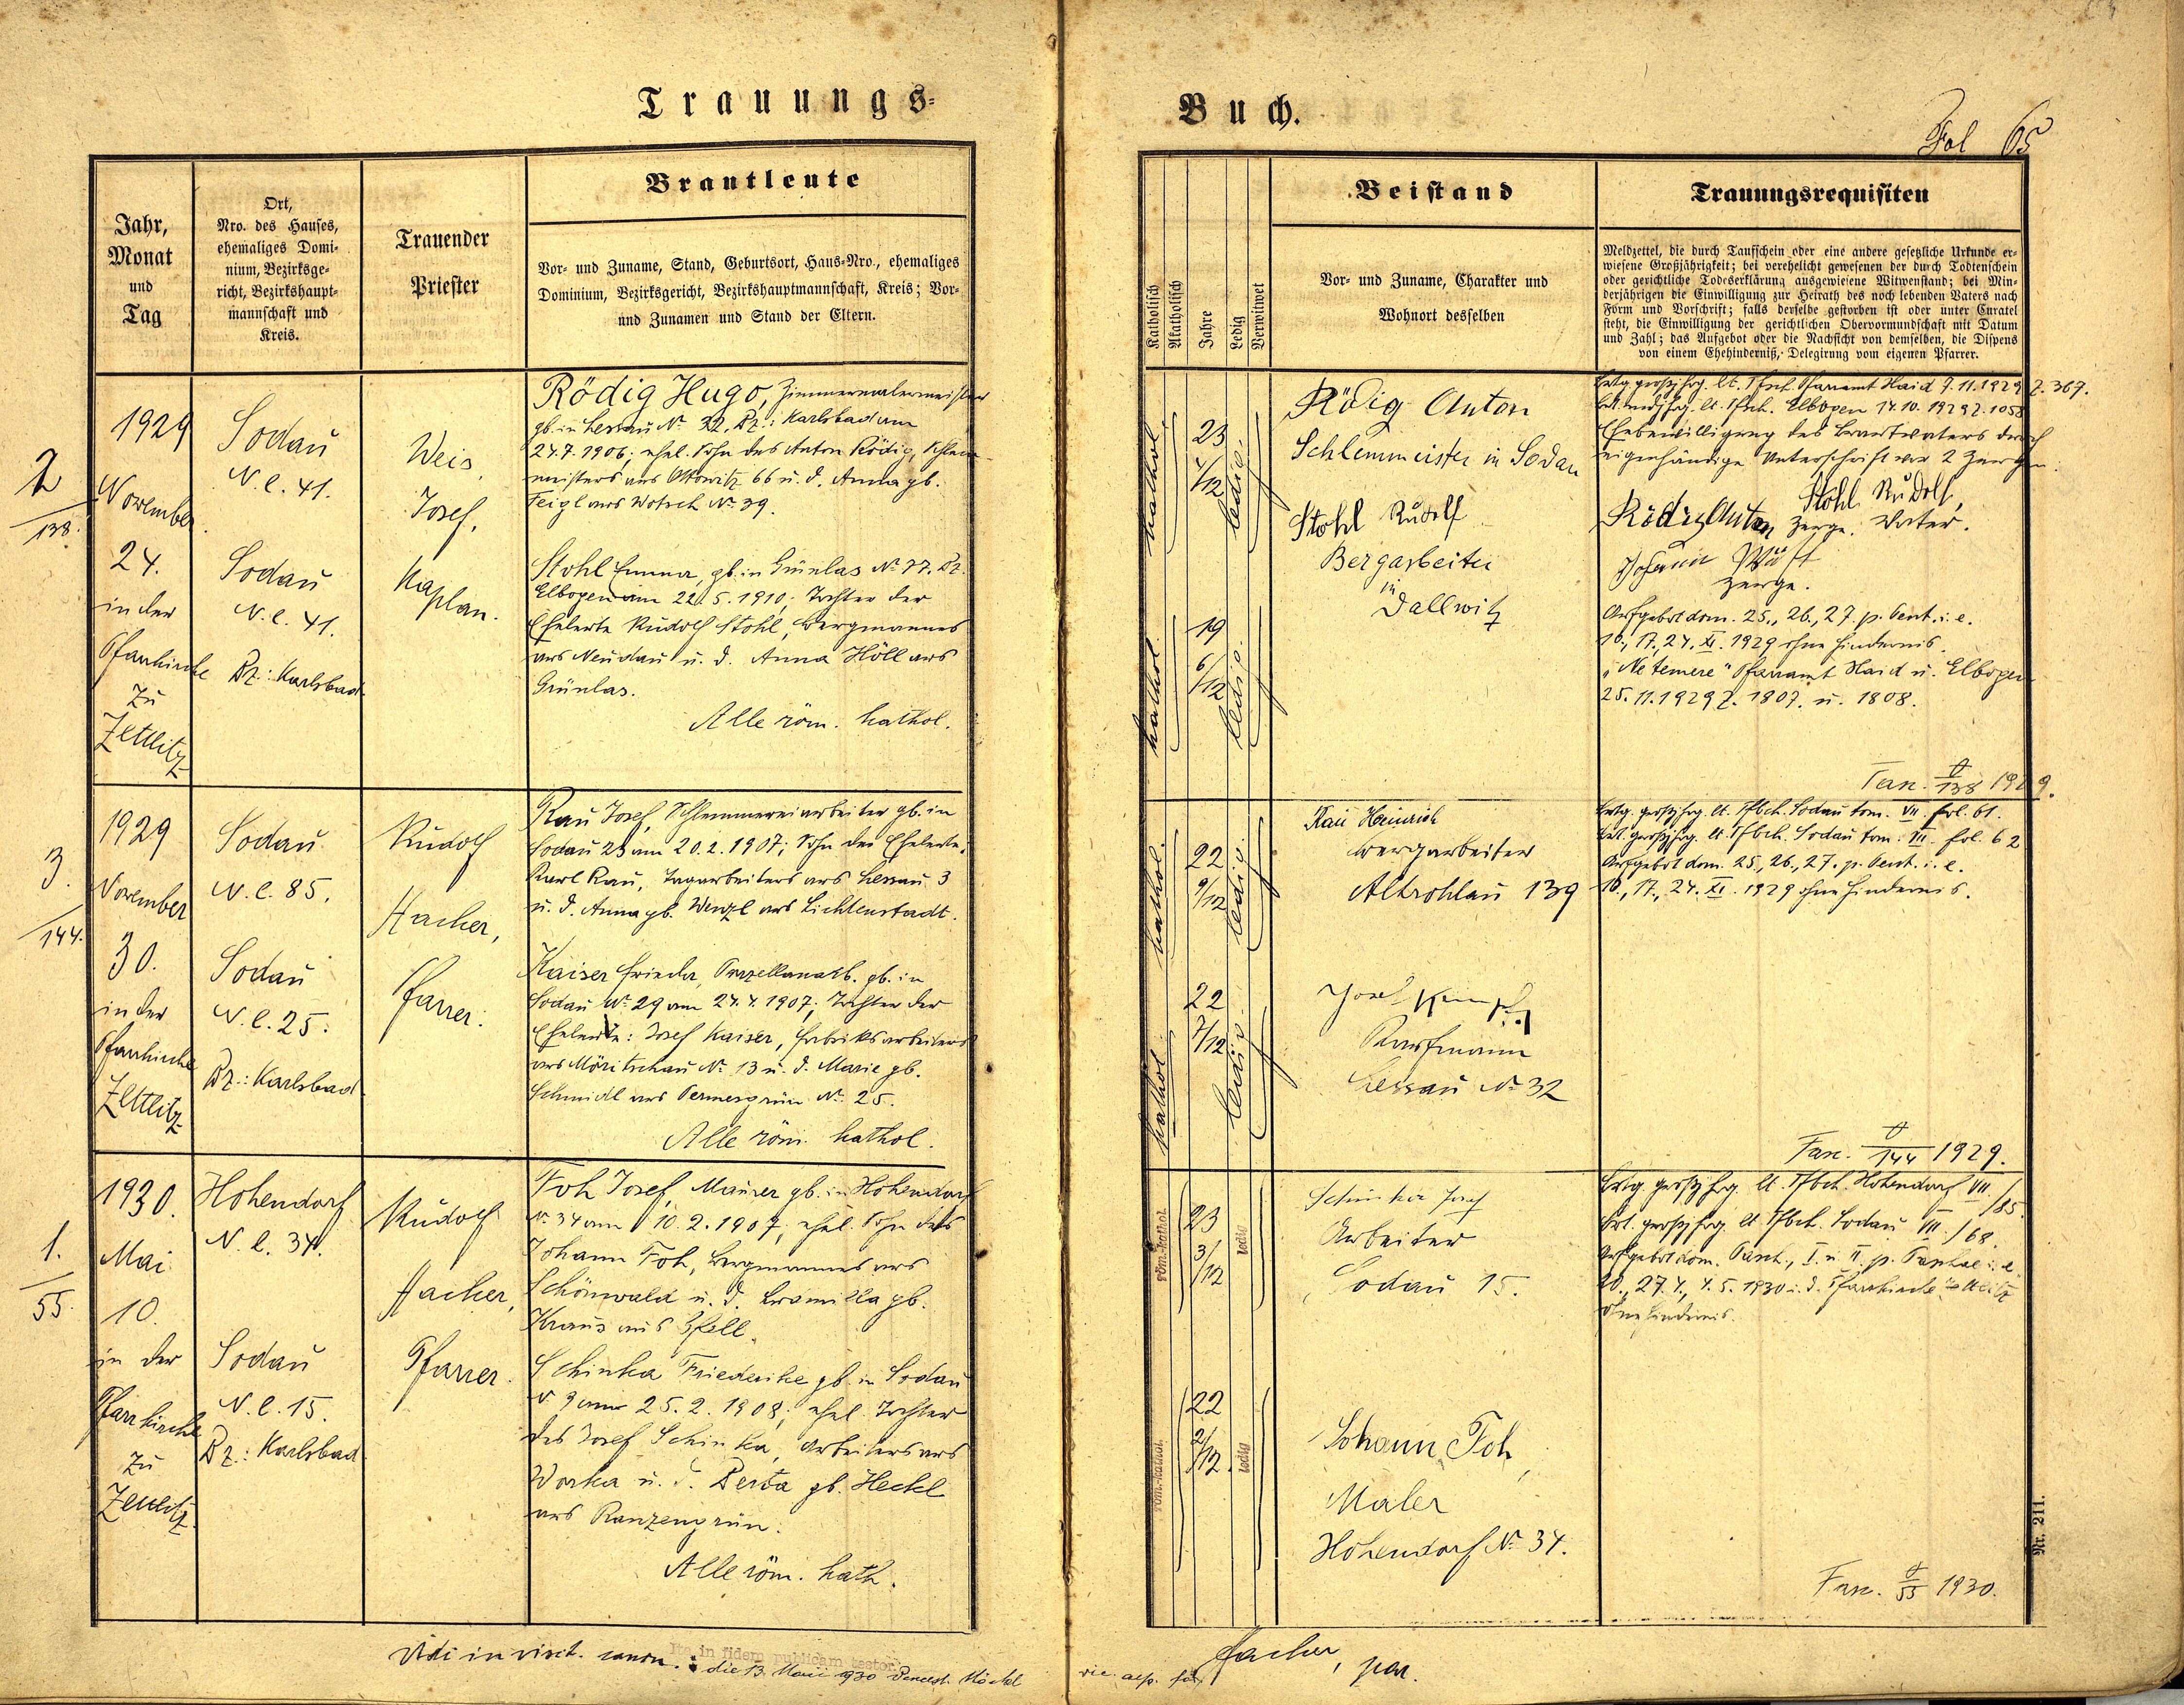 Trauungs-
Jahr,
Monat
und
Tag
Ort,
Nro. des Hauses,
ehemaliges Domi-
nium, Bezirksge-
richt, Bezirkshaupt-
mannschaft und
Kreis.
Trauender
Priester
Brautleute
Vor- und Zuname, Stand, Geburtsort, Haus-Nro., ehemaliges
Dominium, Bezirksgericht, Bezirkshauptmannschaft, Kreis; Vor-
und Zunamen und Stand der Eltern.
2
138.
1929
November
24.
in der
Pfarrkirche
zu
Zettlitz
Sodau
N. C. 41.
Sodau
N. C. 41.
Bz.: Karlsbad
Weis,
Josef,
Kaplan.
Rödig Hugo, Zimmermalermeister
gb. in Lessau Nº 32. Bz.: Karlsbad am
24.7.1906; ehel. Sohn des Anton Rödig, Schlem-
meisters aus Ottowitz 66 u. d. Anna gb.
Feigl aus Wotsch Nº 39.
Stohl Emma, gb. in Grünlas Nº 77. Bz.
Elbogen am 22.5.1910; Tochter der
Eheleute Rudolf Stohl, Bergmannes
aus Neudau u. d. Anna Höll aus
Grünlas.
Alle röm. kathol.
3.
144.
1929
November
30.
in der
Pfarrkirche
Zettlitz
Sodau
N. C. 85.
Sodau
N. C. 25.
Bz.: Karlsbad
Rudolf
Hacker,
Pfarrer.
Rau Josef, Schlemmereiarbeiter gb. in
Sodau 23 am 20.2.1907; Sohn der Eheleute:
Karl Rau, Tagarbeiters aus Lessau 3
u. d. Anna gb. Wenzl aus Lichtenstadt.
Kaiser Frieda, Porzellanarb. gb. in
Sodau Nº 29 am 24.4.1907; Tochter der
Eheleute: Josef Kaiser, Fabriksarbeiters
aus Möritschau Nº 13 u. d. Marie gb.
Schmidl aus Permesgrün Nº 25.
Alle röm. kathol.
1.
55.
1930.
Mai
10.
in der
Pfarrkirche
zu
Zettlitz.
Hohendorf
N. C. 34.
Sodau
N. C. 15.
Bz.: Karlsbad
Rudolf
Hacker,
Pfarrer.
Foh Josef, Maurer gb. in Hohendorf
Nº 34 am 10.2.1907; ehel. Sohn des
Johann Foh, Bergmannes aus
Schönwald u. d. gb.
Kraus aus
Schinka Friederike gb. in Sodau
Nº 9 am 25.2.1908; ehel. Tochter
des Josef Schinka, Arbeiters aus
Worka u. d. Berta gb. Heckl
aus Ranzengrün.
Alle röm. kath.
Vidi in visit. canon.
Ita in fidem publicam testor
die 13. Maii 1930
Buch.
Fol 65
Katholisch
Akatholisch
Jahre
Ledig
Verwitwet
Beistand
Vor- und Zuname, Charakter und
Wohnort desselben
Trauungsrequisiten
Meldzettel, die durch Taufschein oder eine andere gesetzliche Urkunde er-
wiesene Großjährigkeit; bei verehelicht gewesenen der durch Todtenschein
oder gerichtliche Todeserklärung ausgewiesene Witwenstand; bei Min-
derjährigen die Einwilligung zur Heirath des noch lebenden Vaters nach
Form und Vorschrift; falls derselbe gestorben ist oder unter Curatel
steht, die Einwilligung der gerichtlichen Obervormundschaft mit Datum
und Zahl; das Aufgebot oder die Nachsicht von demselben, die Dispens
von einem Ehehinderniß, Delegirung vom eigenen Pfarrer.
kathol.
23
4/12
ledig.
kathol.
19
6/12
ledig.
Rödig Anton
Schlemmeister in Sodau
Stohl Rudolf
Bergarbeiter
in
Dallwitz
Brtg. großjhrg. lt. Tfsch. Pfarramt Haid 9.11.1929 Z. 369.
Brt. mdjhrg. lt. Tfsch. Elbogen 14.10.1929 Z. 1058
Ehebewilligung des Brautvaters durch
eigenhändige Unterschrift vor 2 Zeugen.
Stohl Rudolf,
Rödig Anton Zeuge. Vater.
Johann
Zeuge.
Aufgebot dom. 25., 26., 27. p. Pent. i. e.
10., 17., 24. XI. 1929 ohne Hindernis.
"Ne temere" Pfarramt Haid u. Elbogen
25.11.1929 Z. 1807. u. 1808.
Fasc. 138 1929.
kathol.
22
9/12
ledig.
kathol.
22
7/12
ledig.
Rau Heinrich
Bergarbeiter
Altrohlau 139
Josef
Kaufmann
Lessau Nº 32
Brtg. großjhrg. lt. Tfbch. Sodau tom. VII. fol. 61.
Brt. großjhrg. lt. Tfbch. Sodau tom. VII. fol. 62
Aufgebot dom. 25., 26., 27. p. Pent. i. e.
10., 17., 24. XI. 1929 ohne Hindernis.
Fasc. 144 1929.
röm.-kathol.
23
3/12
ledig
röm.-kathol.
22
2/12
ledig
Schinka Josef
Arbeiter
Sodau 15.
Johann Foh,
Maler
Hohendorf Nº 34.
Brtg. großjhrg. lt. Tfbch. Hohendorf VII./85.
Brt. großjhrg. lt. Tfbch. Sodau VII./68.
Aufgebot dom. Pasch., I. u. II. p. Pascha i. e.
20., 27.4., 4.5.1930 i. d. Pfarrkirche Zettlitz
ohne Hindernis.
Fasc. 55 1930.
Hacker, par.
Nr. 211.